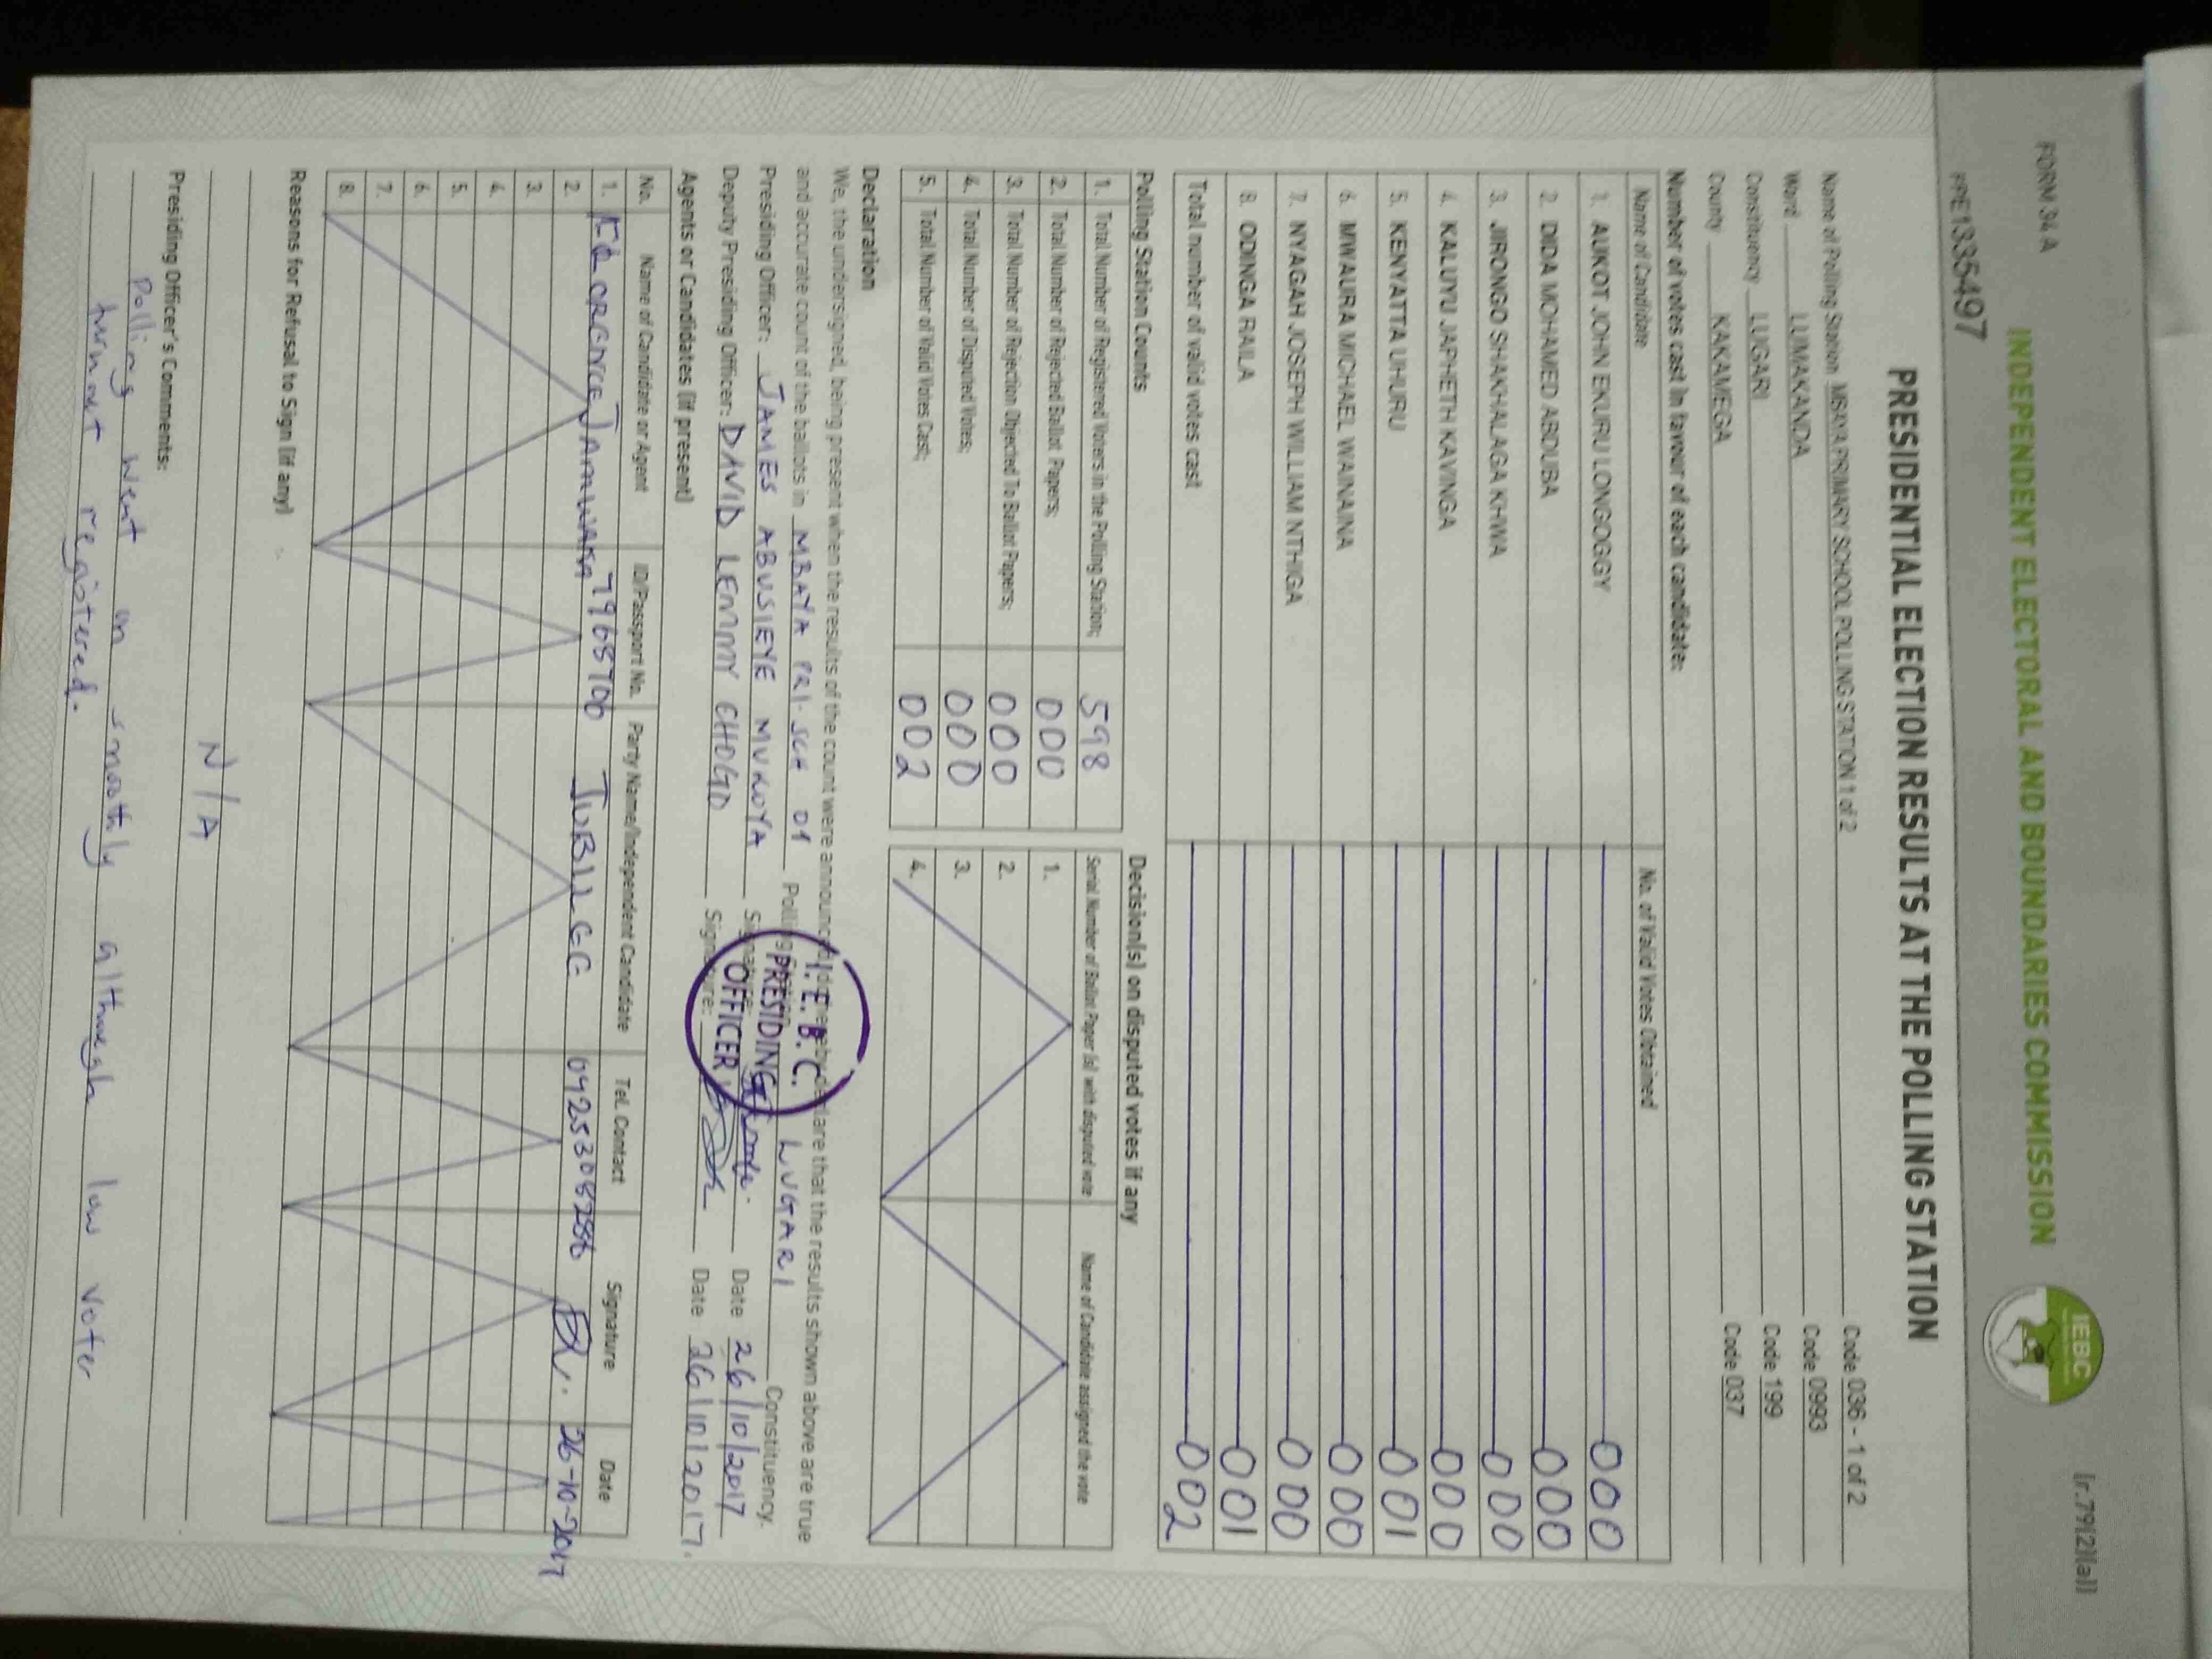 FORM 34 A
[r.79(2)(a)]
INDEPENDENT ELECTORAL AND BOUNDARIES COMMISSION
IEBC
PRESIDENTIAL ELECTION RESULTS AT THE POLLING STATION
Name of Polling Station MBAYA PRIMARY SCHOOL POLLING STATION 1 of 2 Code 036 - 1 of 2
Ward LUMAKANDA Code 0993
Constituency LUGARI Code 199
County KAKAMEGA Code 037
Number of votes cast in favour of each candidate:
Name of Candidate No. of Valid Votes Obtained
1. AUKOT JOHN EKURU LONGOGGY 000
2. DIDA MOHAMED ABDUBA 000
3. JIRONGO SHAKHALAGA KHWA 000
4. KALUYU JAPHETH KAVINGA 000
5. KENYATTA UHURU 001
6. MWAURA MICHAEL WAINAINA 000
7. NYAGAH JOSEPH WILLIAM NTHIGA 000
8. ODINGA RAILA 001
Total number of valid votes cast 002
Polling Station Counts
1. Total Number of Registered Voters in the Polling Station; 598
2. Total Number of Rejected Ballot Papers; 000
3. Total Number of Rejection Objected To Ballot Papers; 000
4. Total Number of Disputed Votes; 000
5. Total Number of Valid Votes Cast; 002
Decision(s) on disputed votes if any
Serial Number of Ballot Paper (s) with disputed vote Name of Candidate assigned the vote
1.
2.
3.
4.
Declaration
We, the undersigned, being present when the results of the count were announced, do hereby declare that the results shown above are true
and accurate count of the ballots in MBAYA PRI. SCH 01 Polling LUGARI Constituency.
Presiding Officer: JAMES ABUSIEYE MUKOYA Signature: Date 26/10/2017
Deputy Presiding Officer: DAVID LENNY CHOGO Signature: Date 26/10/2017.
I.E.B.C.
PRESIDING
OFFICER
Agents or Candidates (if present)
No. Name of Candidate or Agent ID/Passport No. Party Name/Independent Candidate Tel. Contact Signature Date
1. 26-10-2017
2.
3.
4.
5.
6.
7.
8.
Reasons for Refusal to Sign (if any)
N/A
Presiding Officer's Comments:
Polling went on smoothly although low voter
turnout registered.